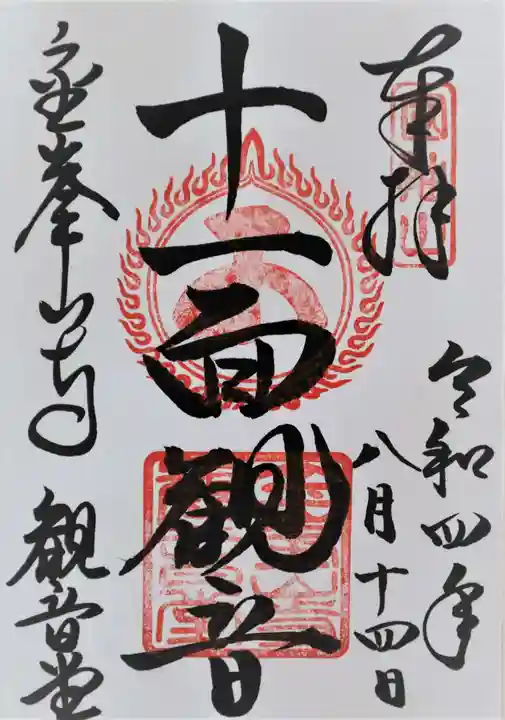 奉拝
令和四年
八月十四日
十一面観音
金峯山寺 観音堂